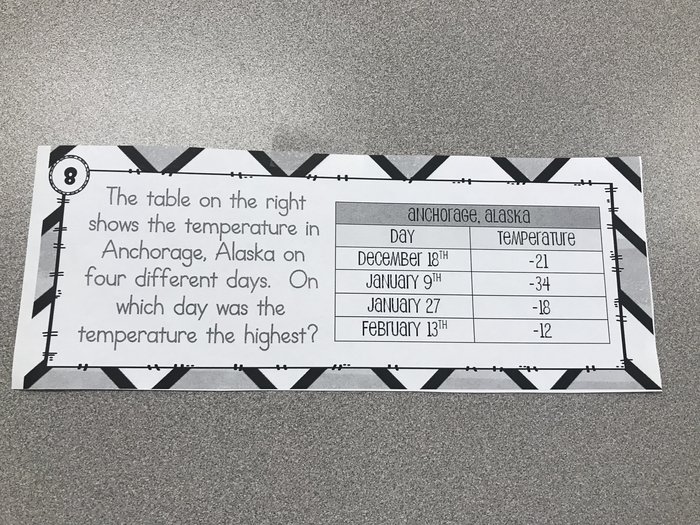 8
The table on the right
shows the temperature in
Anchorage, Alaska on
four different days. On
which day was the
temperature the highest?
ANCHORAGE, ALASKA
DAY TEMPERATURE
DECEMBER 18TH -21
JANUARY 9TH -34
JANUARY 27 -18
FEBRUARY 13TH -12